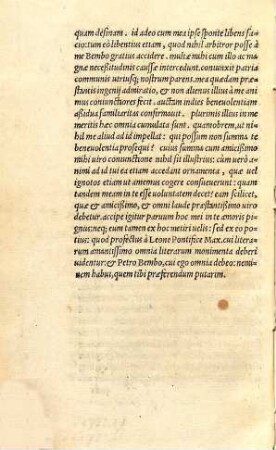 quam desinam. id adeo cum mea ipse sponte libens fa-
cio: tum eò libentius etiam, quod nihil arbitror posse à
me Bembo gratius accidere. multæ nihi cum illo ac ma-
gnæ necessitudinis causæ intercedunt. coniunxit patria
communis utriusq; nostrum parens. mea quædam præ-
stantis ingenij admiratio, & non alienus illius à me ani-
mus coniunctiores fecit. auctum indies beneuolentiam
aßidua familiaritas confirmauit. plurimis illius in me
meritis hæc omnia cumulata sunt. quamobrem, ut ni-
hil me aliud ad id impellat: qui possum non summa te
beneuolentia prosequi? cuius summa cum amicißimo
mihi uiro coniunctione nihil sit illustrius: cùm uerò ani-
mi ad id tui ea etiam accedant ornamenta, quæ uel
ignotos etiam ut amemus cogere consueuerint: quan
tandem meam in te esse uoluntatem decet? ean scilicet,
quæ & amicißimo, & omni laude præstantißimo uiro
debetur. accipe igitur paruum hoc mei in te amoris pi-
gnus: neq; eum tamen ex hoc metiri uelis: sed ex eo po-
tius: quod profectus à Leone Pontifice Max. cui litera-
rum amantissimo omnia literarum monimenta deberi
uidentur: & Petro Bembo, cui ego omnia debeo: nemi-
nem habui, quem tibi præferendum putarim.